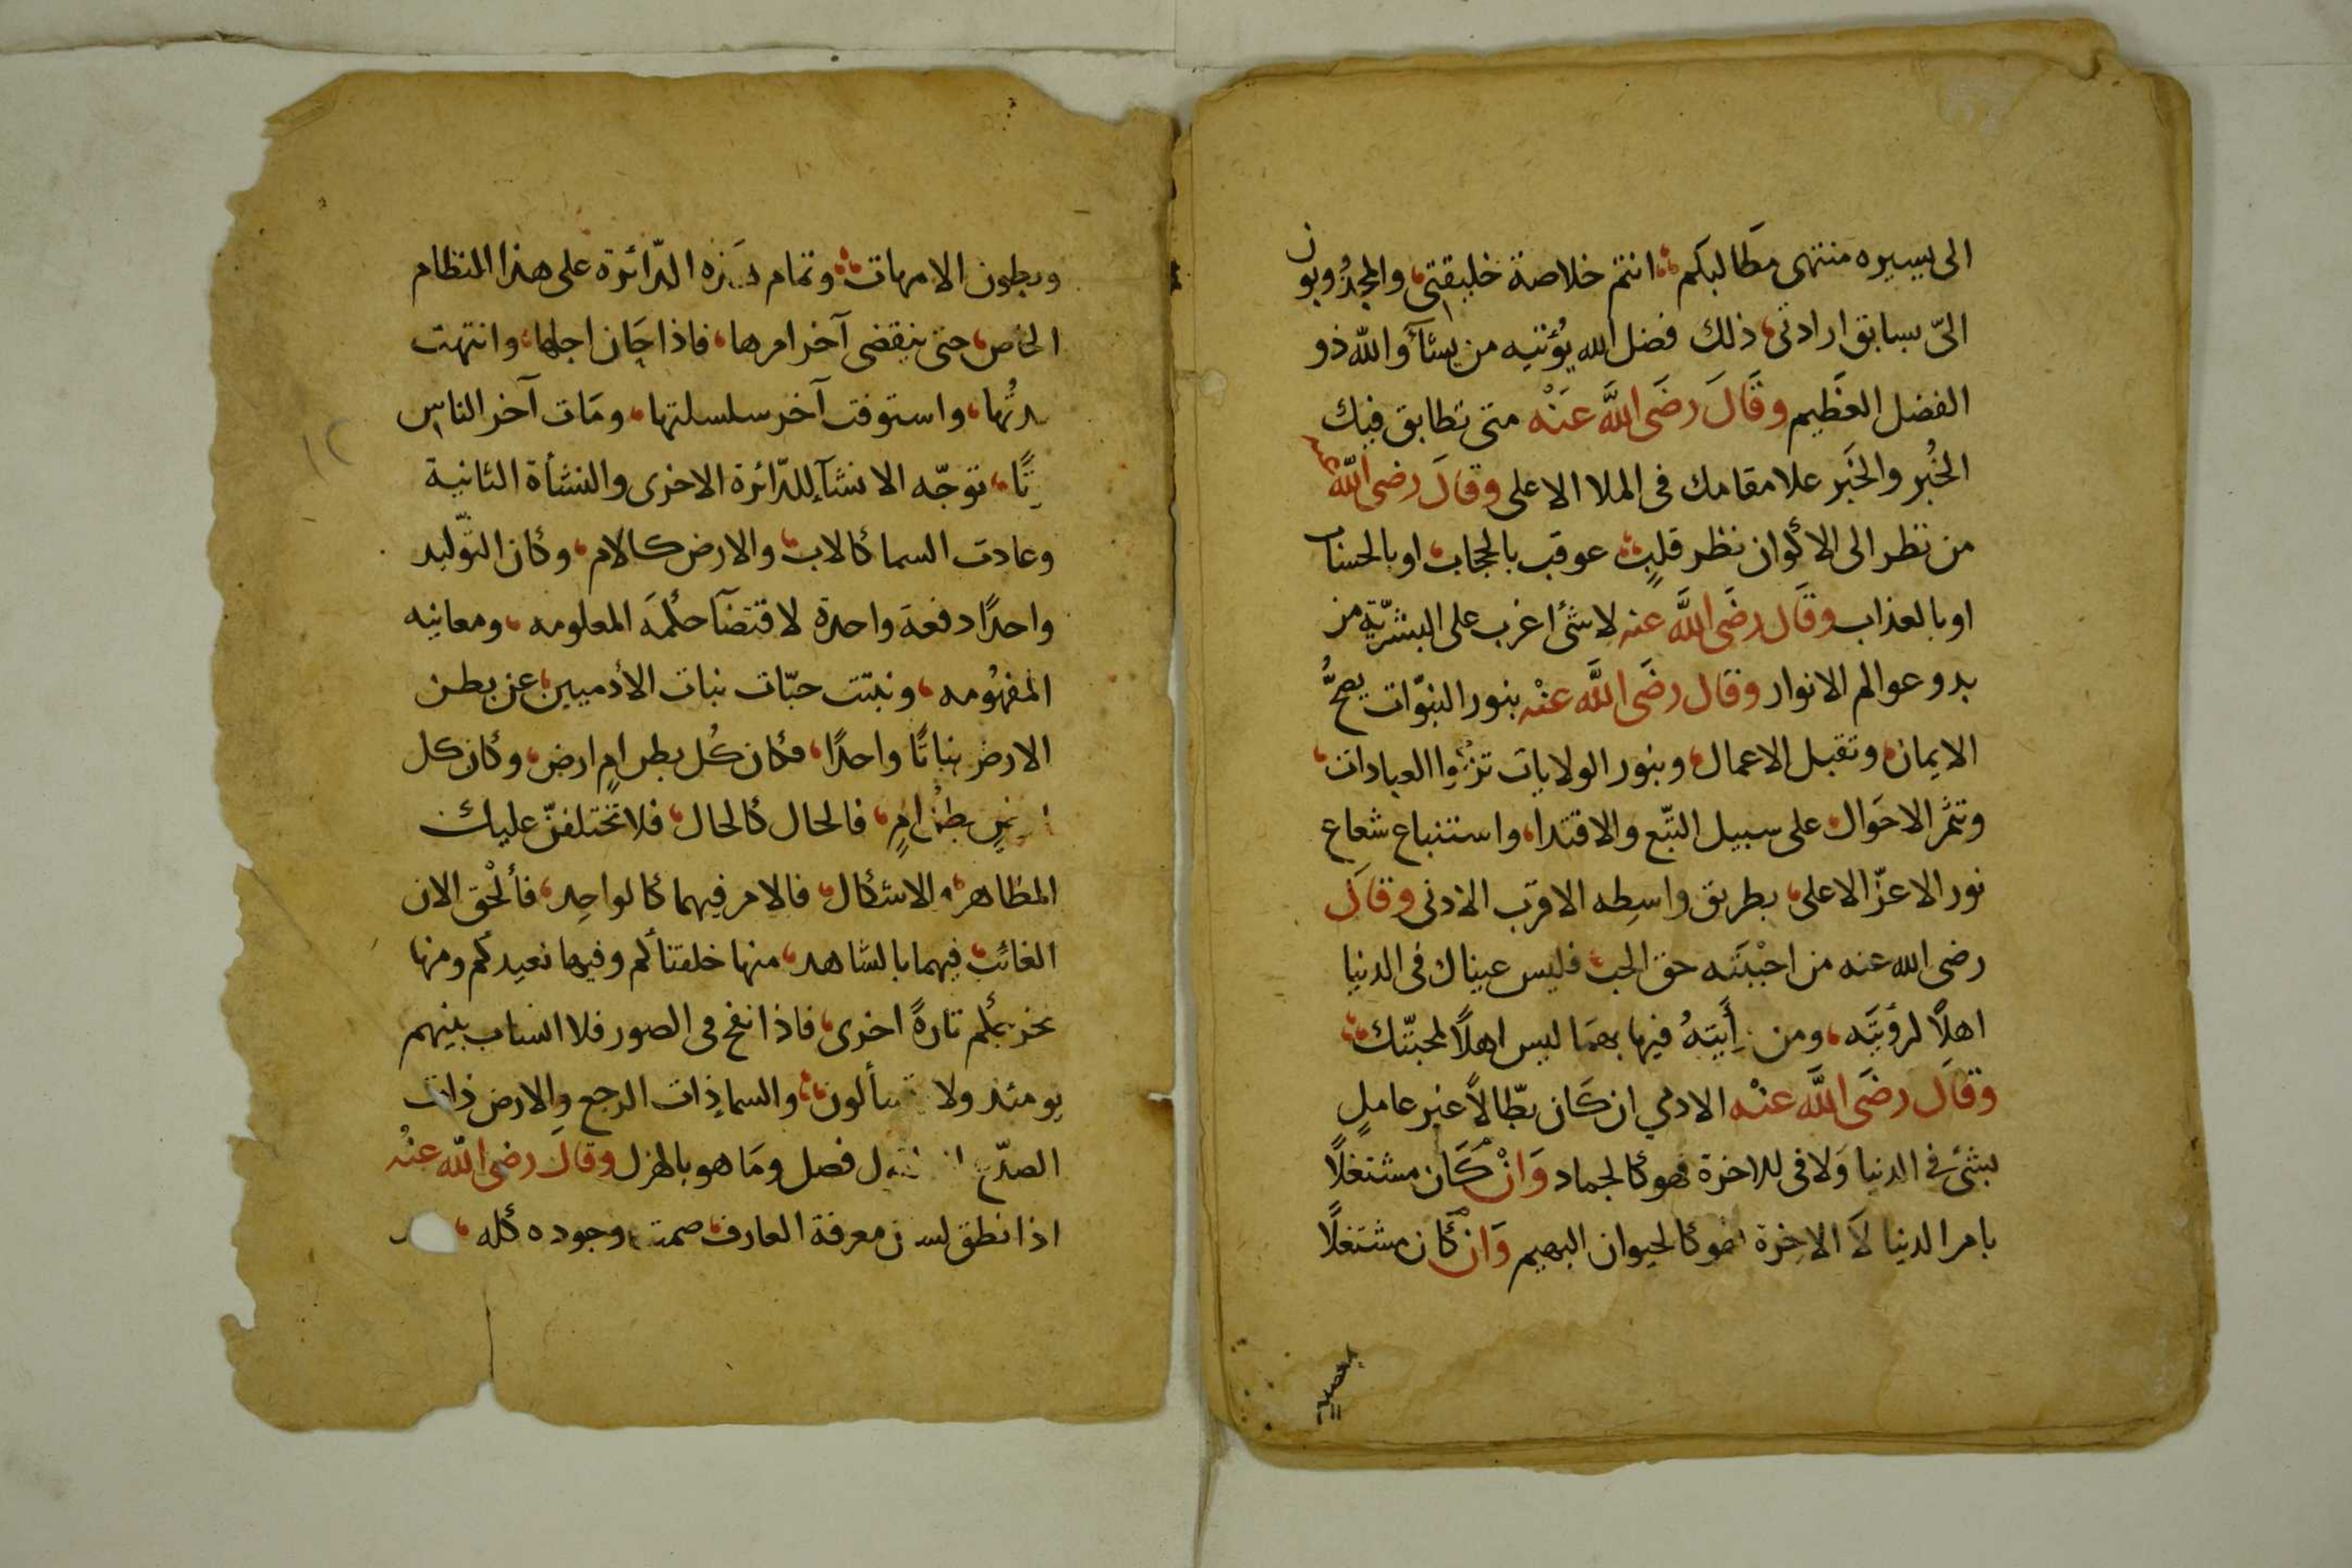 الى يسيره منتهى مَطالبكم انتم خلاصة خليقتى والمجذوبون
الىّ بسابق ارادتى ذلك فضل الله يؤتيه من يشآ والله ذو
الفضل العظيم وقَالَ رضَى اللَّه عَنْه متى تطابق فيك
الخُبر والخَبر علا مقامك فى الملا الاعلى وقالَ رضى اللّه عنه
من نظر الى الأكوان نظر قلبٍ عوقب بالحجاب او بالحساب
او بالعذاب وقَال رضَى اللَّه عنه لا شئ اغرب على البشريّة من
بدو عوالم الانوار وقال رضَى اللَّه عنْه بنور النبوّات يصحُّ
الايمان وتقبل الاعمال وبنور الولايات تزكوا العبادات
وتثمر الاحَوال على سبيل التبّع والاقتدا واستتباع شعاع
نور الاعزّ الاعلى بطريق واسِطه الاقرب الادنى وقالَ
رضى الله عنه من احْبَبْتَه حق الحب فليس عيناك فى الدنيا
اهلًا لرؤيتَه ومن رأَيتهُ فيها بهمَا ليس اهلًا لمحبّتك
وقالَ رضَى اللَّه عنْه الادمي ان كَان بطّالاً غير عاملٍ
بشئ فى الدنيا وَلا فى للاخرة فهو كالجماد وَانْ كَان مشتغلًا
بامر الدنيا لاَ الاخِرة فهو كالحيوان البهيم وَانْ كَان مشتغلًا
بعمل
وبطون الامهات وتمام هذه الدّائرة على هذا النظام
الخاص حتى ينقضى آخر امرها فاذا حَان اجلها وانتهت
مدتُها واستوفت آخر سلسلتها ومَات آخر الناس
توجّه الانشآ للدّائرة الاخرى والنشأة الثانية
وعادت السما كالاب والارض كالام وكان التوّليد
واحدًا دفعة واحدة لاقتضآ حكْمَه المعلومه ومعانيه
المفهُومه ونبتت حبّات نبات الأدميين عن بطن
الارض نباتًا واحدًا فكان كُل بطن امٍ ارض وكان كل
ارضٍ بطن امٍ فالحال كالحال فلا تختلفنّ عليك
المظاهر والاشكال فالامر فيهما كالواحِد فألْحق الان
الغائب فيهما بالشاهد منها خلقناكم وفيها نعيدكم ومنها
نخرجكم تارةً اخرى فاذا نفخ فى الصور فلا انساب بينهم
يومئذ ولا تسألون والسما ذات الرجع والارض ذات
الصدّع انه لقول فصل ومَا هو بالهزل وقالَ رضى اللّه عنْه
اذا نطق لسان معرفة العارف صمت وجوده كله
١٢